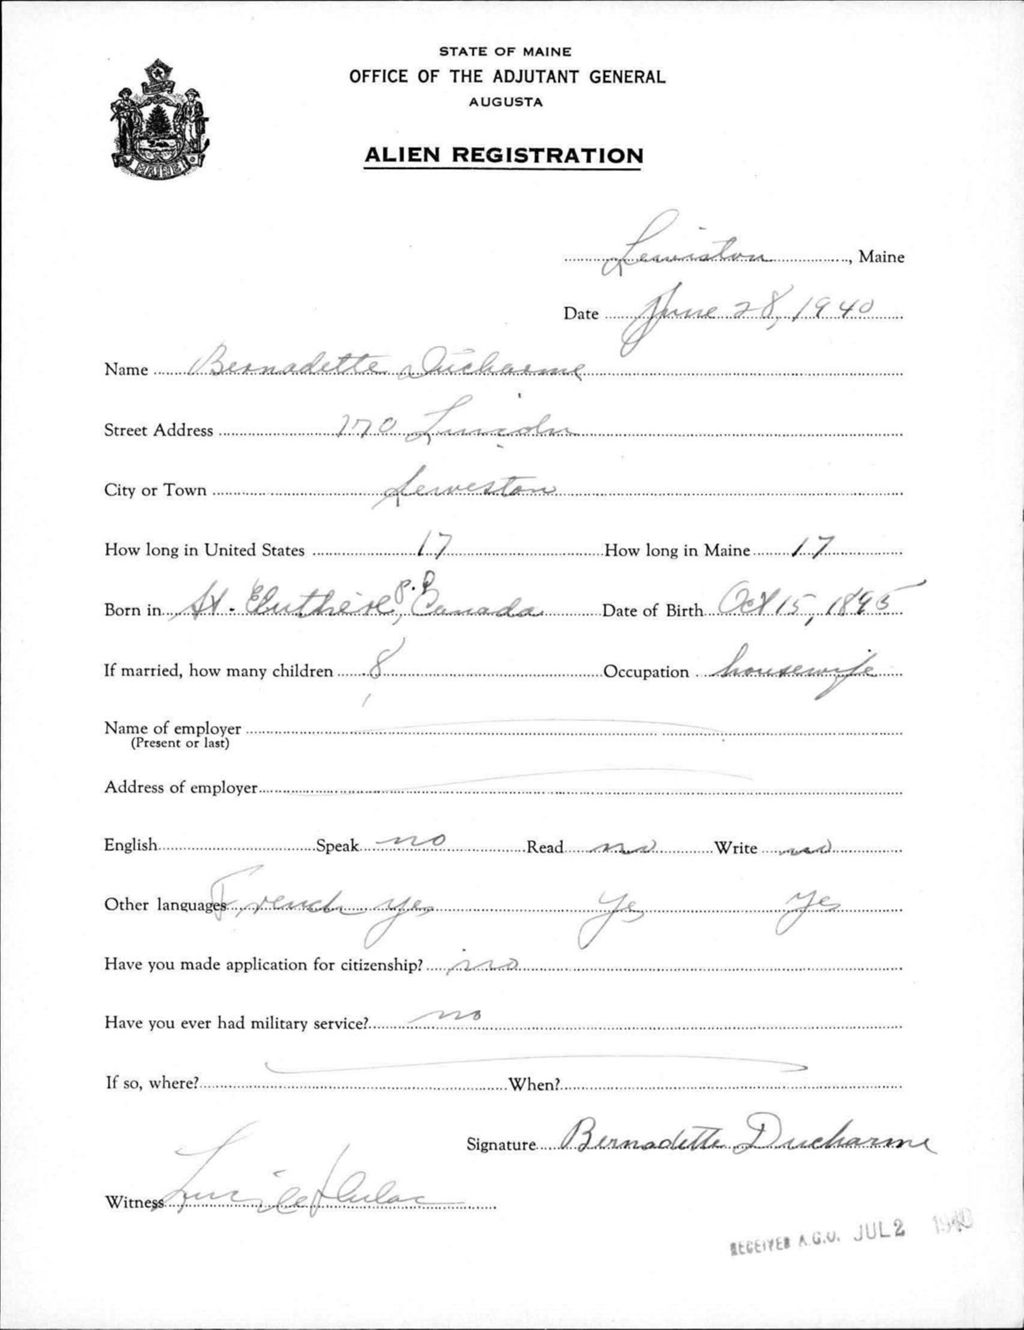 STATE OF MAINE
OFFICE OF THE ADJUTANT GENERAL
AUGUSTA
ALIEN REGISTRATION
MAINE
Lewiston, Maine
Date June 28, 1940
Name Bernadette Ducharme
Street Address 170 Lincoln
City or Town Lewiston
How long in United States 17 How long in Maine 17
Born in St. Eluthère, P.Q. Canada Date of Birth Oct 15, 1895
If married, how many children 8 Occupation housewife
Name of employer
(Present or last)
Address of employer
English Speak no Read no Write no
Other languages French yes Yes Yes
Have you made application for citizenship? no
Have you ever had military service? no
If so, where? When?
Signature Bernadette Ducharme
Witness Lucile
RECEIVED A.G.O. JUL 2 1940